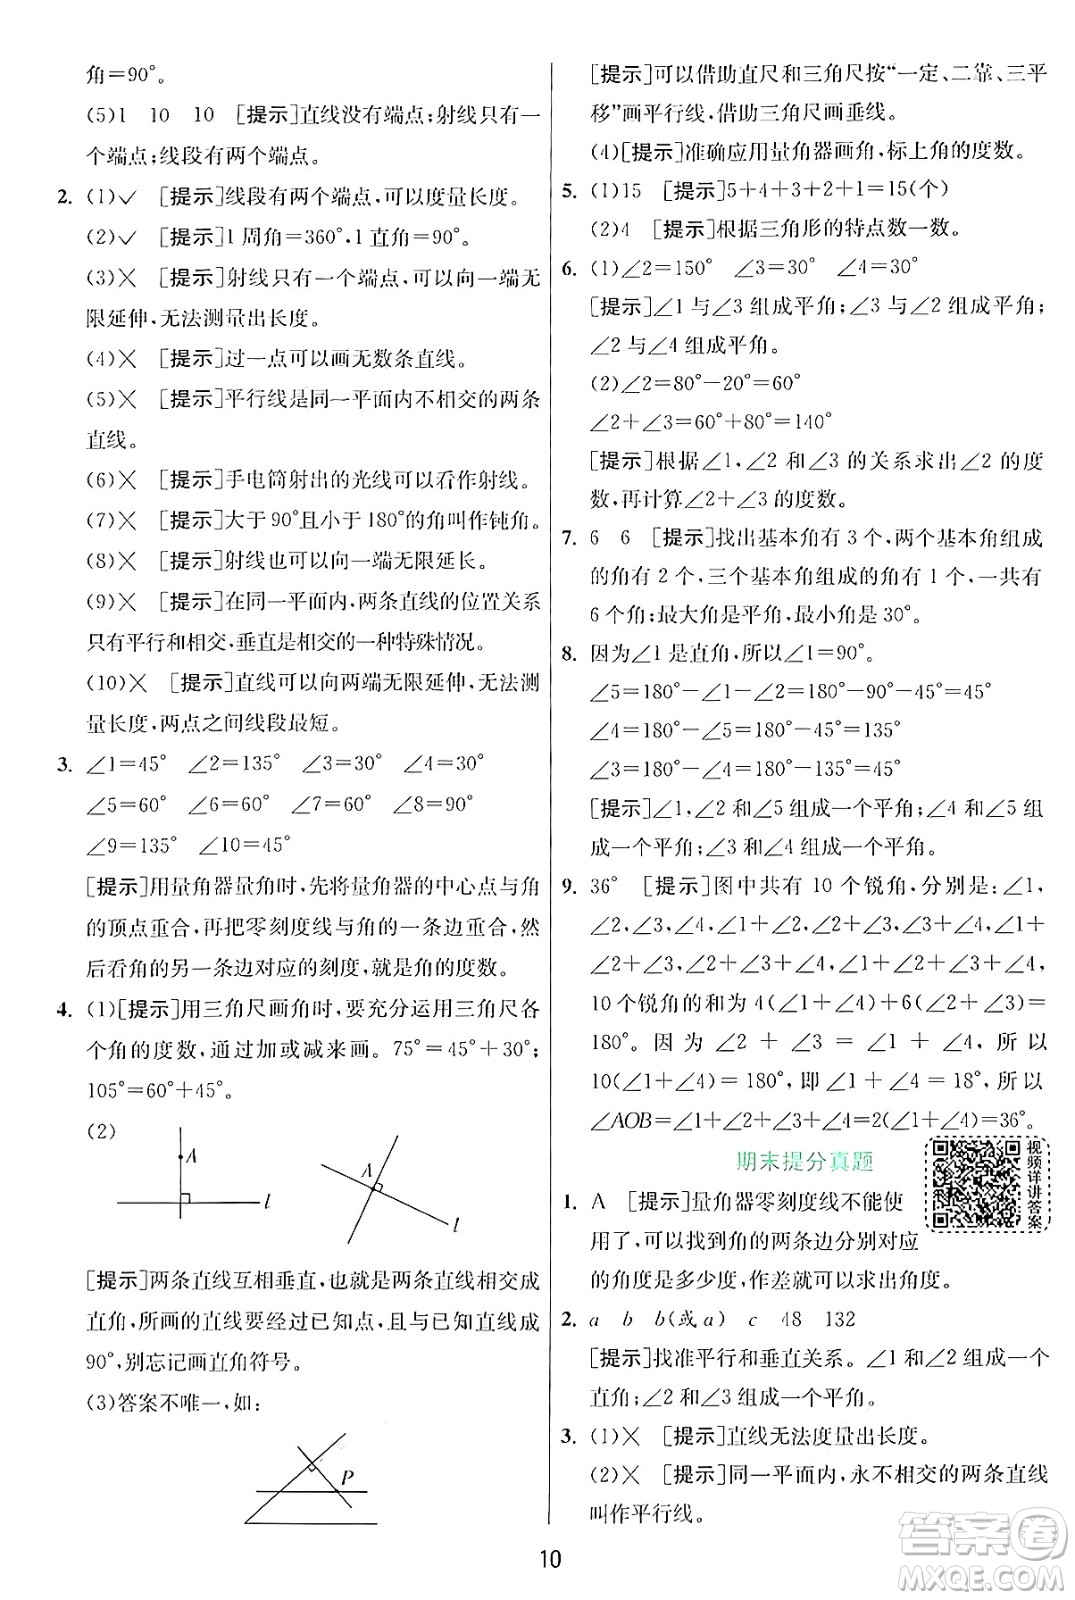 角=90°。
(5)1 10 10 [提示]直线没有端点;射线只有
一个端点;线段有两个端点。
2. (1)✓ [提示]线段有两个端点,可以度量长度。
(2)✓ [提示]1周角=360°,1直角=90°。
(3)✕ [提示]射线只有一个端点,可以向一端无
限延伸,无法测量出长度。
(4)✕ [提示]过一点可以画无数条直线。
(5)✕ [提示]平行线是同一平面内不相交的两条
直线。
(6)✕ [提示]手电筒射出的光线可以看作射线。
(7)✕ [提示]大于90°且小于180°的角叫作钝角。
(8)✕ [提示]射线可以向一端无限延长。
(9)✕ [提示]在同一平面内,两条直线的位置关系
只有平行和相交,垂直是相交的一种特殊情况。
(10)✕ [提示]直线可以向两端无限延伸,无法测
量长度,两点之间线段最短。
3. ∠1=45° ∠2=135° ∠3=30° ∠4=30°
∠5=60° ∠6=60° ∠7=60° ∠8=90°
∠9=135° ∠10=45°
[提示]用量角器量角时,先将量角器的中心点与角
的顶点重合,再把零刻度线与角的一条边重合,然
后看角的另一条边对应的刻度,就是角的度数。
4. (1)[提示]用三角尺画角时,要充分运用三角尺各
个角的度数,通过加或减来画。75°=45°+30°;
105°=60°+45°。
(2)
A
l
A
l
[提示]两条直线互相垂直,也就是两条直线相交成
直角,所画的直线要经过已知点,且与已知直线成
90°,别忘记画直角符号。
(3)答案不唯一,如:
P
[提示]可以借助直尺和三角尺按“一定、二靠、三平
移”画平行线,借助三角尺画垂线。
(4)[提示]准确应用量角器画角,标上角的度数。
5. (1)15 [提示]5+4+3+2+1=15(个)
(2)4 [提示]根据三角形的特点数一数。
6. (1)∠2=150° ∠3=30° ∠4=30°
[提示]∠1与∠3组成平角;∠3与∠2组成平角;
∠2与∠4组成平角。
(2)∠2=80°-20°=60°
∠2+∠3=60°+80°=140°
[提示]根据∠1,∠2和∠3的关系求出∠2的度
数,再计算∠2+∠3的度数。
7. 6 6 [提示]找出基本角有3个,两个基本角组成
的角有2个,三个基本角组成的角有1个,一共有
6个角;最大角是平角,最小角是30°。
8. 因为∠1是直角,所以∠1=90°。
∠5=180°-∠1-∠2=180°-90°-45°=45°
∠4=180°-∠5=180°-45°=135°
∠3=180°-∠4=180°-135°=45°
[提示]∠1,∠2和∠5组成一个平角;∠4和∠5组
成一个平角;∠3和∠4组成一个平角。
9. 36° [提示]图中共有10个锐角,分别是:∠1,
∠2,∠3,∠4,∠1+∠2,∠2+∠3,∠3+∠4,∠1+
∠2+∠3,∠2+∠3+∠4,∠1+∠2+∠3+∠4,
10个锐角的和为4(∠1+∠4)+6(∠2+∠3)=
180°。因为∠2+∠3=∠1+∠4,所以
10(∠1+∠4)=180°,即∠1+∠4=18°,所以
∠AOB=∠1+∠2+∠3+∠4=2(∠1+∠4)=36°。
期末提分真题
视频详讲答案
1. A [提示]量角器零刻度线不能使
用了,可以找到角的两条边分别对应
的角度是多少度,作差就可以求出角度。
2. a b b(或a) c 48 132
[提示]找准平行和垂直关系。∠1和∠2组成一个
直角;∠2和∠3组成一个平角。
3. (1)✕ [提示]直线无法度量出长度。
(2)✕ [提示]同一平面内,永不相交的两条直线
叫作平行线。
10
答案圈
MXQE.COM